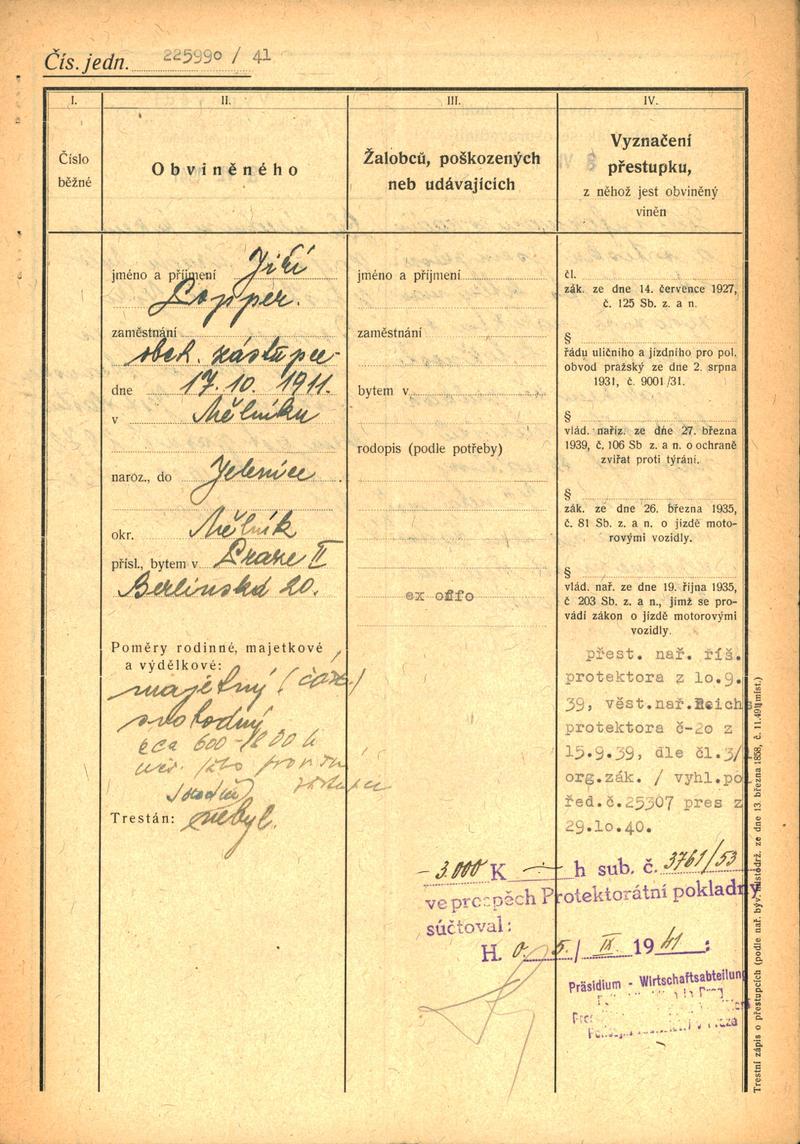 Čís. jedn. 225990 / 41
I.
Číslo
běžné
II.
Obviněného
III.
Žalobců, poškozených
neb udávajících
IV.
Vyznačení
přestupku,
z něhož jest obviněný
viněn
jméno a příjmení Jiří
Popper.
zaměstnání
obch. zástupce
dne 17. 10. 1911.
v Mělníku
naroz., do Jelenice
okr. Mělník
přísl., bytem v Praze II
Berlínská 20.
Poměry rodinné, majetkové
a výdělkové:
majetný
svobodný
cca 600-1200 k
Trestán: nebyl.
jméno a příjmení
zaměstnání
bytem v
rodopis (podle potřeby)
ex offo
čl.
zák. ze dne 14. července 1927,
č. 125 Sb. z. a n.
§
řádu uličního a jízdního pro pol.
obvod pražský ze dne 2. srpna
1931, č. 9001/31.
§
vlád. naříz. ze dne 27. března
1939, č. 106 Sb z. a n. o ochraně
zvířat proti týrání.
§
zák. ze dne 26. března 1935,
č. 81 Sb. z. a n. o jízdě moto-
rovými vozidly.
§
vlád. nař. ze dne 19. října 1935,
č 203 Sb. z. a n., jímž se pro-
vádí zákon o jízdě motorovými
vozidly.
přest. nař. říš.
protektora z 1o.9.
39, věst.nař.Reichs
protektora č-2o z
15.9.39, dle čl.3/1
org.zák. / vyhl.pol
řed.č.25307 pres z
29.1o.40.
- 3.000 K -·- h sub. č. 3761/53
ve prospěch Protektorátní pokladny
súčtoval:
H. 0. 5./ IX 1941 :
Präsidium - Wirtschaftsabteilung
Trestní zápis o přestupcích (podle nař. býv. místodrž. ze dne 13. března 1858, č. 11.491 místo.)